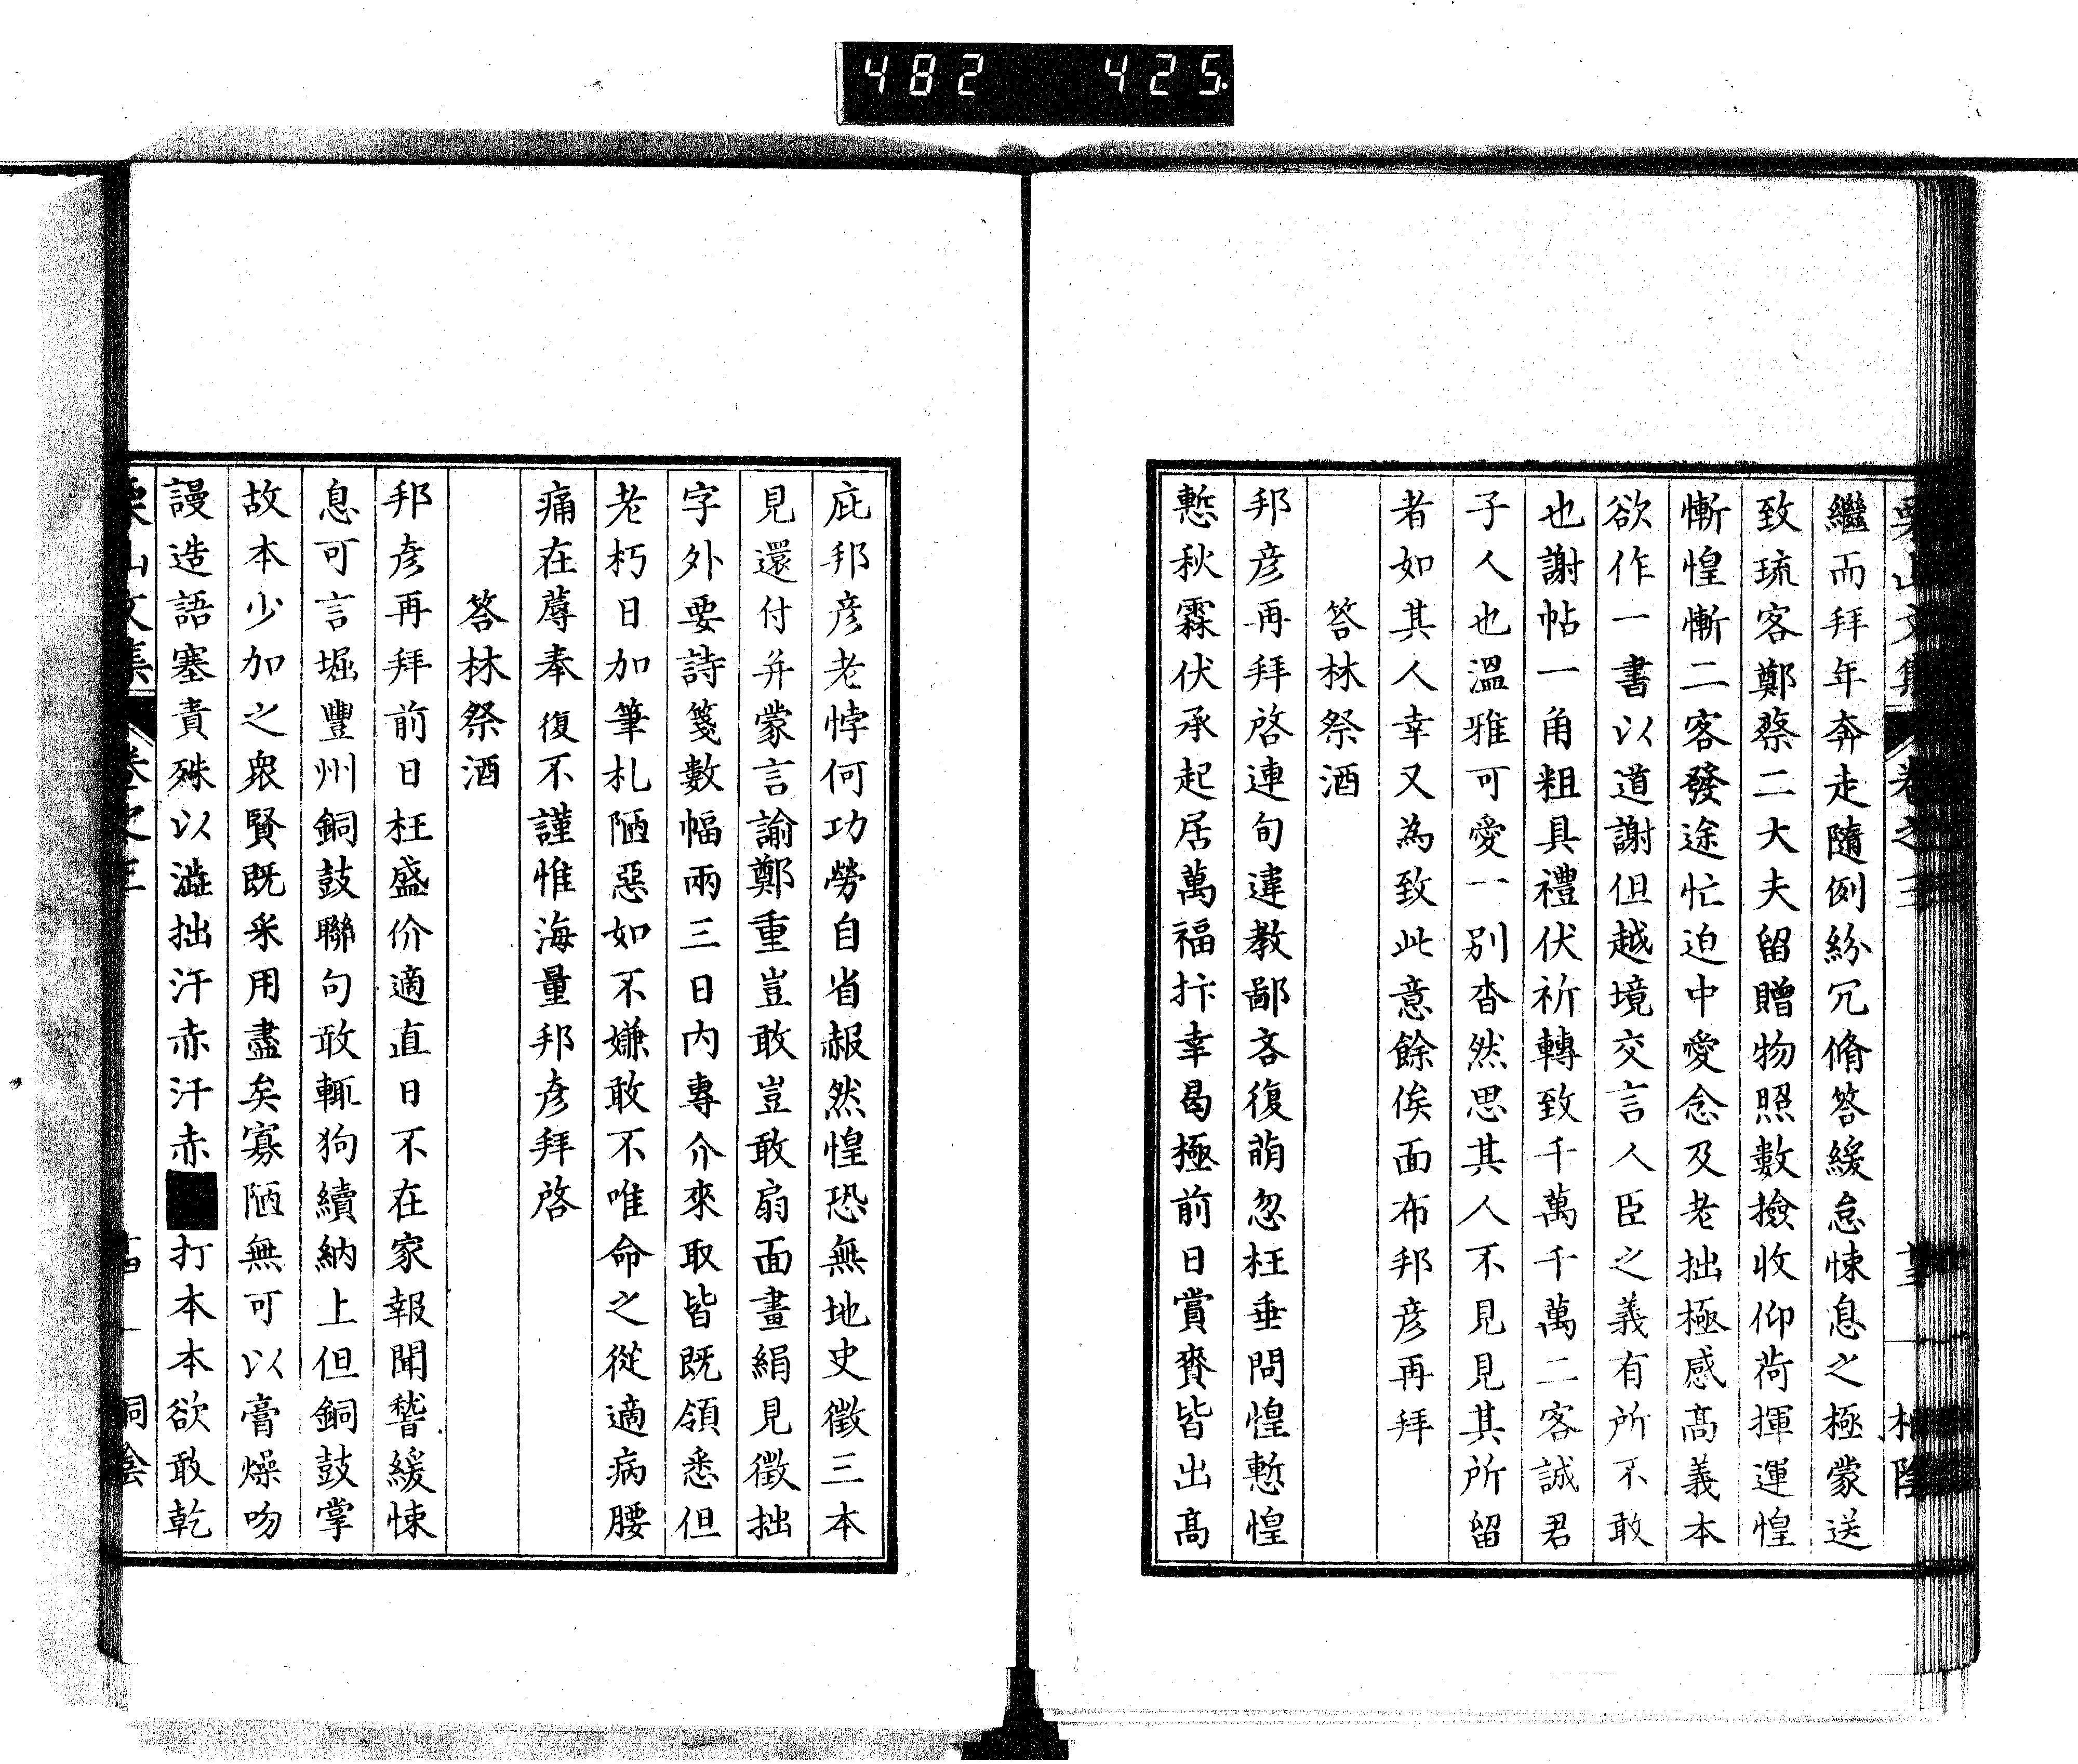 482 425
栗山文集 卷之三
繼而拜年奔走隨例紛冗脩答緩怠悚息之極蒙送
致琉客鄭蔡二大夫留贈物照數撿收仰荷揮運惶
慚惶慚二客發途忙迫中愛念及老拙極感高義本
欲作一書以道謝但越境交言人臣之義有所不敢
也謝帖一角粗具禮伏祈轉致千萬千萬二客誠君
子人也溫雅可愛一別杳然思其人不見見其所留
者如其人幸又為致此意餘俟面布邦彦再拜
答林祭酒
邦彦再拜啓連旬違教鄙吝復萌忽枉垂問惶慙惶
慙秋霖伏承起居萬福抃幸曷極前日賞賚皆出高
庇邦彦老悖何功勞自省赧然惶恐無地史徵三本
見還付并蒙言諭鄭重豈敢豈敢扇面畫絹見徵拙
字外要詩箋數幅兩三日內專介來取皆既領悉但
老朽日加筆札陋惡如不嫌敢不唯命之從適病腰
痛在蓐奉復不謹惟海量邦彦拜啓
答林祭酒
邦彦再拜前日枉盛价適直日不在家報聞嗸緩悚
息可言堀豐州銅鼓聯句敢輒狗續納上但銅鼓掌
故本少加之衆賢既采用盡矣寡陋無可以膏燥吻
謾造語塞責殊以澁拙汗赤汗赤■打本本欲敢乾
栗山文集 卷之三 十四 桐陰